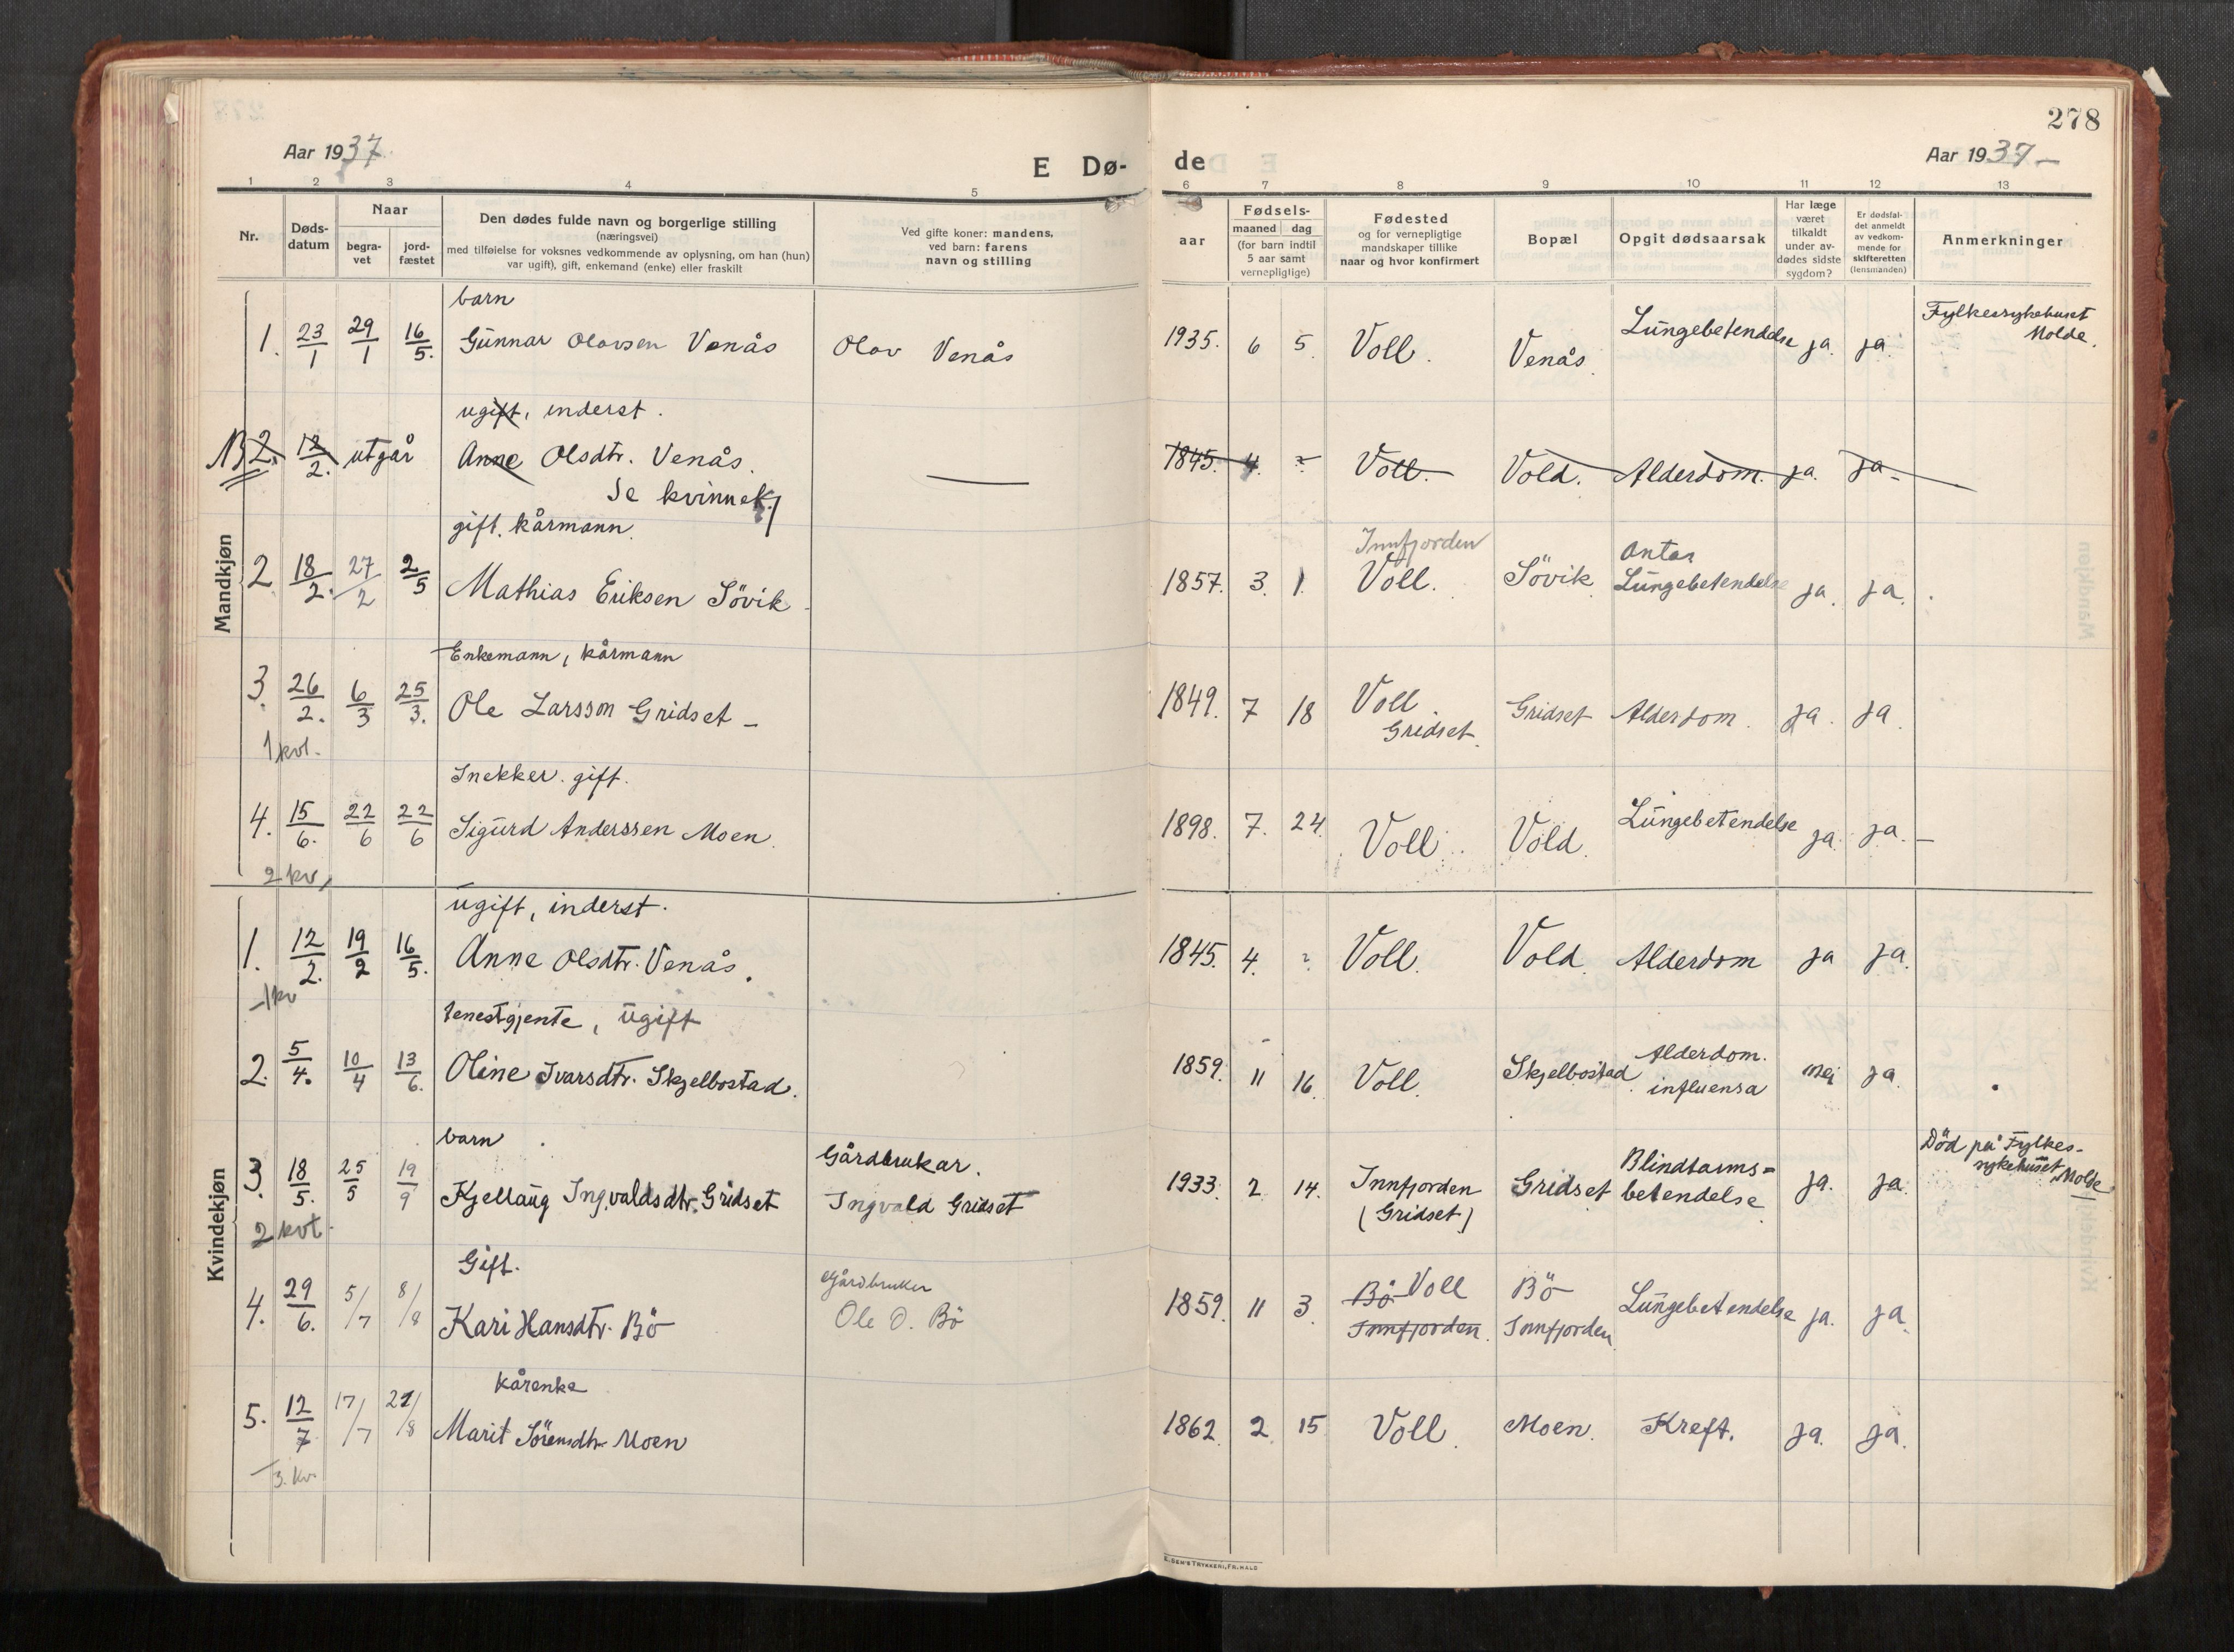 278
Aar 1937
E Dø-
de
Aar 1937 –
1 2 3 4 5 6 7 8 9 10 11 12 13
Nr.
Døds-
datum
Naar
begra-
vet
jord-
fæstet
Den dødes fulde navn og borgerlige stilling
(næringsvei)
med tilføielse for voksnes vedkommende av oplysning, om han (hun)
var ugift), gift, enkemand (enke) eller fraskilt
Ved gifte koner: mandens,
ved barn: farens
navn og stilling
aar
Fødsels-
maaned dag
(for barn indtil
5 aar samt
vernepligtige)
Fødested
og for vernepligtige
mandskaper tillike
naar og hvor konfirmert
Bopæl
Opgit dødsaarsak
Har læge
været
tilkaldt
under av-
dødes sidste
sygdom?
Er dødsfal-
det anmeldt
av vedkom-
mende for
skifteretten
(lensmanden)
Anmerkninger
Mandkjøn
barn
1. 23/1 29/1 16/5. Gunnar Olavsen Venås Olav Venås 1935. 6 5. Voll. Venås. Lungebetendelse ja. ja. Fylkessykehuset
Molde.
ugift, inderst.
2. 12/2. utgår Anne Olsdtr. Venås. — 1845. 4. ? Voll. Vold. Alderdom. ja. ja –
Se kvinnek.
gift. kårmann.
2 18/2. 27/2 2/5 Mathias Eriksen Sövik 1857. 3. 1. Innfjorden
Voll. Sövik Antas
Lungebetendelse ja. ja.
Enkemann, kårmann
3. 26/2. 6/3 25/3. Ole Larsson Gridset – 1849. 7 18 Voll
Gridset. Gridset Alderdom. ja. ja.
1 kvt.
Snekker. gift.
4. 15/6. 22/6 22/6 Sigurd Anderssen Moen. 1898. 7. 24. Voll. Vold. Lungebetendelse ja. ja. –
2 kv,
Kvindekjøn
ugift, inderst.
1. 12/2. 19/2 16/5. Anne Olsdtr. Venås. 1845. 4. ? Voll. Vold. Alderdom ja ja.
1 kv
tenestgjente, ugift
2. 5/4. 10/4 13/6. Oline Ivarsdtr. Skjelbostad. 1859. 11 16. Voll. Skjelbostad Alderdom.
influensa nei ja.
barn
3. 18/5. 25/5 19/9 Kjellaug Ingvaldsdtr. Gridset Gårdbrukar.
Ingvald Gridset 1933. 2. 14. Innfjorden
(Gridset) Gridset Blindtarms=
betendelse ja. ja. Död på Fylkes-
sykehuset, Molde
2 kvt.
Gift.
4. 29/6. 5/7 8/8 Kari Hansdtr. Bö Gårdbruker
Ole O. Bö 1859. 11 3. Bö Voll
Innfjorden. Bö
Innfjorden Lungebetendelse ja. ja.
kårenke
5. 12/7 17/7 /8 Marit Sörensdtr Moen 1862. 2. 15 Voll. Moen. Kreft. ja. ja.
3. kv.
E. SEM'S TRYKKERI, FR.HALD